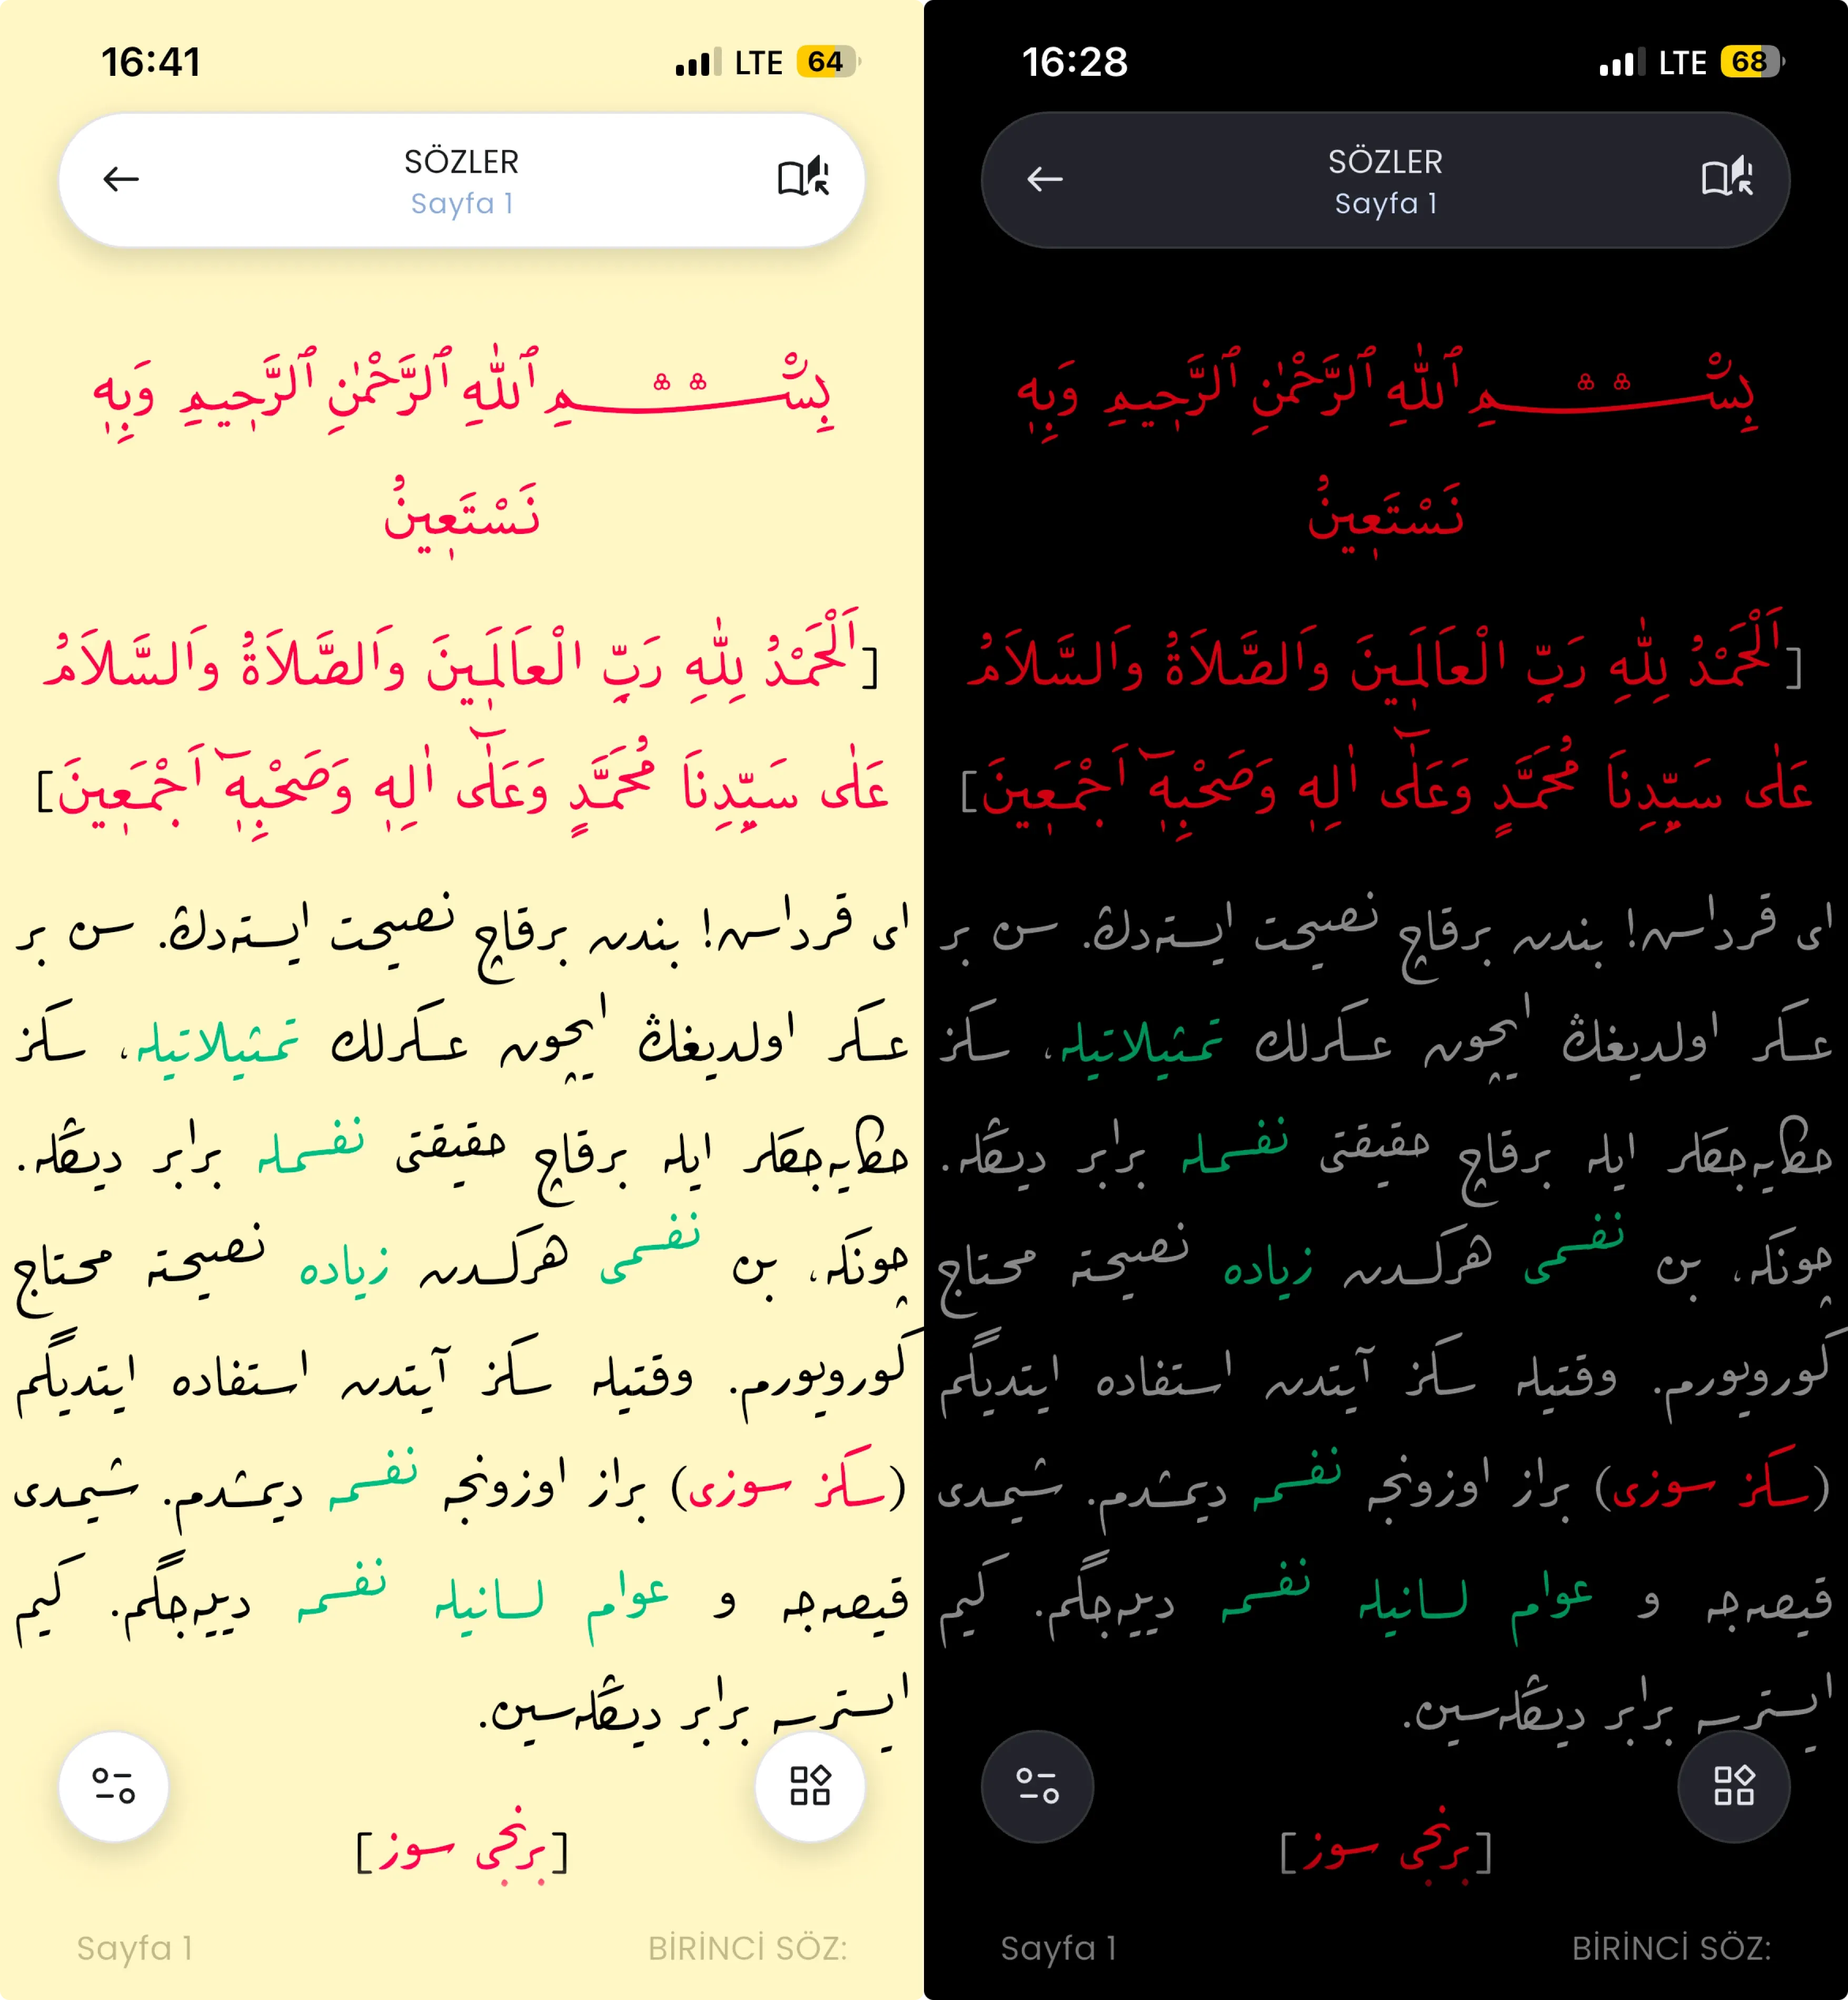 16:41
LTE 64
SÖZLER
Sayfa 1
بِسْــــــــمِ ٱللّٰهِ ٱلرَّحْمٰنِ ٱلرَّحٖيمِ وَبِهٖ
نَسْتَعٖينُ
[اَلْحَمْدُ لِلّٰهِ رَبِّ الْعَالَمٖينَ وَالصَّلاَةُ وَالسَّلاَمُ
عَلٰى سَيِّدِنَا مُحَمَّدٍ وَعَلٰٓى اٰلِهٖ وَصَحْبِهٖٓ اَجْمَعٖينَ]
ای قرداش! بندن برقاچ نصیحت ایستەدڭ. سن بر
عسكر اولدیغڭ ایچون عسكرلك تمثیلاتیله، سكز
حكایەجكلر ایله برقاچ حقیقتی نفسمله برابر دیڭله.
چونكه، بن نفسمی هركسدن زیاده نصیحته محتاج
كورویورم. وقتیله سكز آیتدن استفاده ایتدیگم
(سكز سوزی) براز اوزونجه نفسمه دیمشدم. شیمدی
قیصەجه و عوام لسانیله نفسمه دییەجگم. كیم
ایسترسه برابر دیڭلەسین.
[برنجی سوز]
Sayfa 1
BİRİNCİ SÖZ:
16:28
LTE 68
SÖZLER
Sayfa 1
بِسْــــــــمِ ٱللّٰهِ ٱلرَّحْمٰنِ ٱلرَّحٖيمِ وَبِهٖ
نَسْتَعٖينُ
[اَلْحَمْدُ لِلّٰهِ رَبِّ الْعَالَمٖينَ وَالصَّلاَةُ وَالسَّلاَمُ
عَلٰى سَيِّدِنَا مُحَمَّدٍ وَعَلٰٓى اٰلِهٖ وَصَحْبِهٖٓ اَجْمَعٖينَ]
ای قرداش! بندن برقاچ نصیحت ایستەدڭ. سن بر
عسكر اولدیغڭ ایچون عسكرلك تمثیلاتیله، سكز
حكایەجكلر ایله برقاچ حقیقتی نفسمله برابر دیڭله.
چونكه، بن نفسمی هركسدن زیاده نصیحته محتاج
كورویورم. وقتیله سكز آیتدن استفاده ایتدیگم
(سكز سوزی) براز اوزونجه نفسمه دیمشدم. شیمدی
قیصەجه و عوام لسانیله نفسمه دییەجگم. كیم
ایسترسه برابر دیڭلەسین.
[برنجی سوز]
Sayfa 1
BİRİNCİ SÖZ: